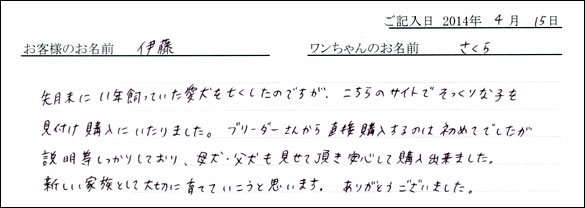 ご記入日 2014年 4月 15日
お客様のお名前 伊藤 ワンちゃんのお名前 さくら
先月末に 11年飼っていた愛犬を亡くしたのですが、こちらのサイトでそっくりな子を
見付け購入にいたりました。ブリーダーさんから直接購入するのは初めてでしたが
説明等しっかりしており、母犬・父犬も見せて頂き安心して購入出来ました。
新しい家族として大切に育てていこうと思います。ありがとうございました。